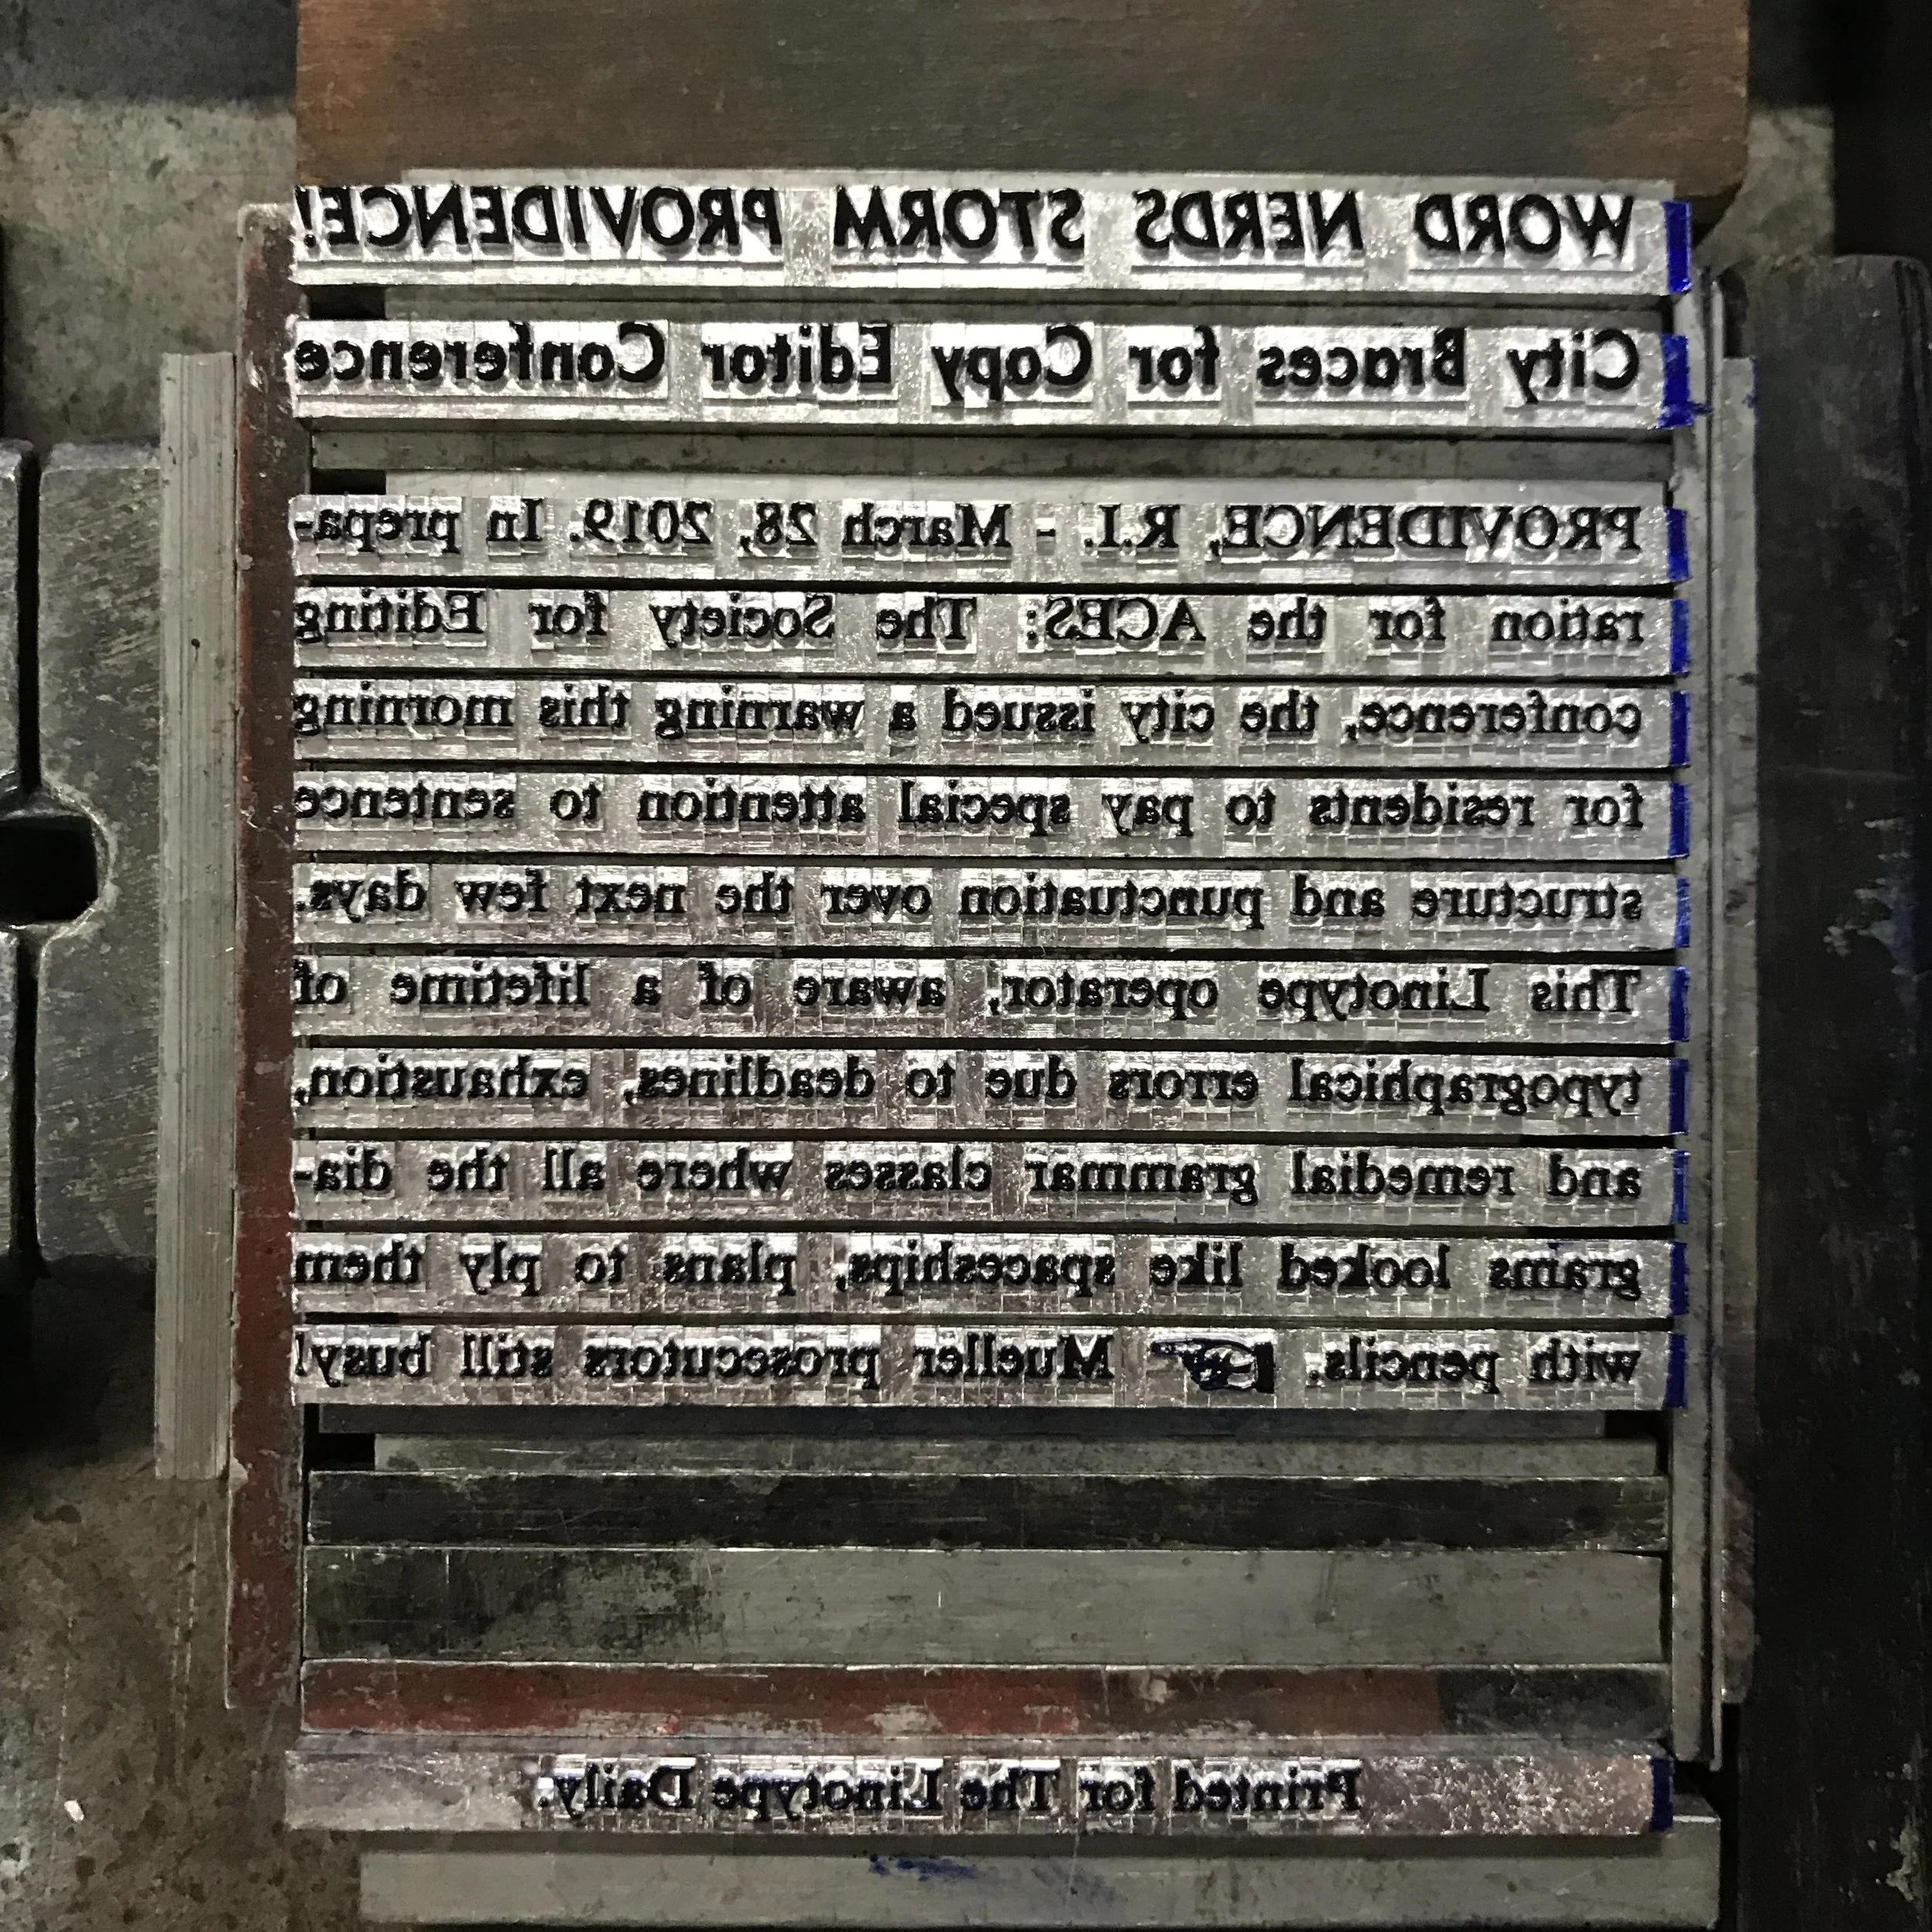 WORD NERDS STORM PROVIDENCE!
City Braces for Copy Editor Conference
PROVIDENCE, R.I. - March 28, 2019. In prepa-
ration for the ACES: The Society for Editing
conference, the city issued a warning this morning
for residents to pay special attention to sentence
structure and punctuation over the next few days.
This Linotype operator, aware of a lifetime of
typographical errors due to deadlines, exhaustion,
and remedial grammar classes where all the dia-
grams looked like spaceships, plans to ply them
with pencils. ☞ Mueller prosecutors still busy!
Printed for The Linotype Daily.